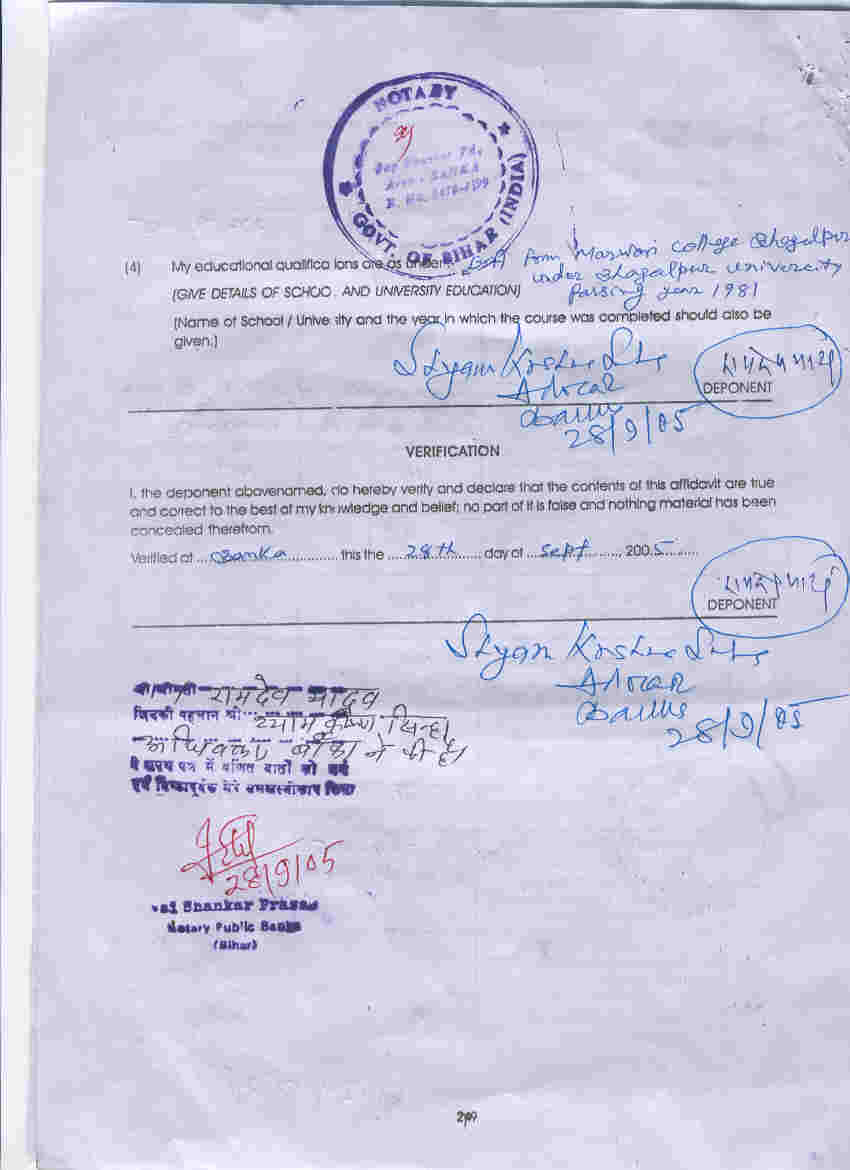 NOTARY
GOVT. OF BIHAR (INDIA)
(4) My educational qualifica ions are as under: Marwari College Bhagalpur
under Bhagalpur University
(GIVE DETAILS OF SCHOO. AND UNIVERSITY EDUCATION) passing year 1981
(Name of School / Unive sity and the year in which the course was completed should also be
given.)
DEPONENT
28/9/05
VERIFICATION
I, the deponent abovenamed, do hereby verify and declare that the contents of this affidavit are true
and correct to the best of my knowledge and belief; no part of it is false and nothing material has been
concealed therefrom.
Verified at ... Banka ............. this the .... 28th ....... day of .... Sept ........., 200.5.........
DEPONENT
28/9/05
श्री/श्रीमती रामदेव यादव
जिनकी पहचान श्री श्याम कृष्ण सिन्हा
अधिवक्ता बाँका ने की है।
ने शपथ पत्र में वर्णित बातों को
28/9/05
Shankar Prasad
Notary Public Banka
(Bihar)